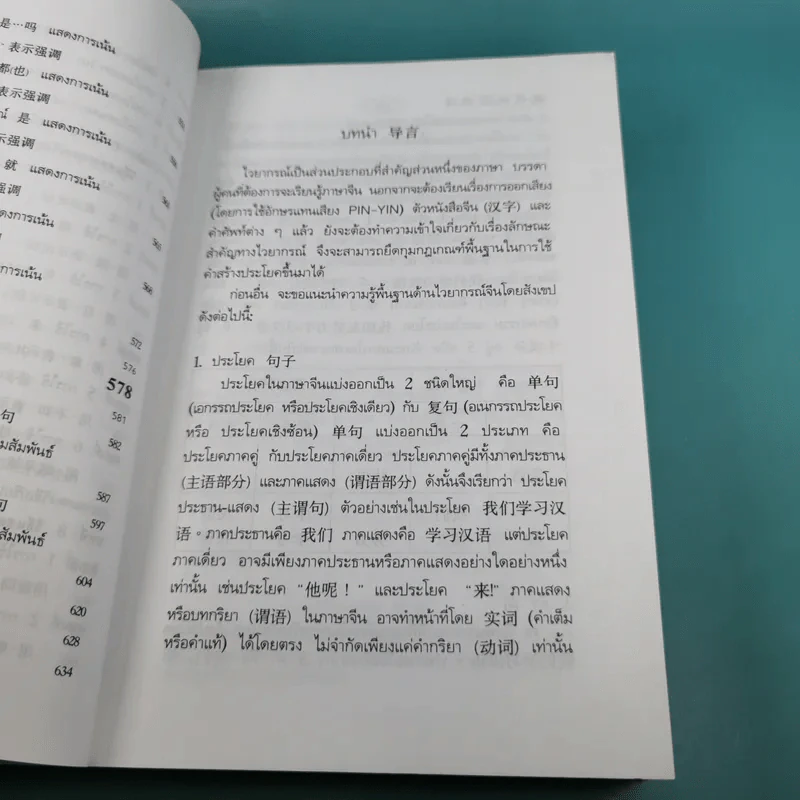 是…吗 แสดงการเน้น
表示强调
都(也) แสดงการเน้น
表示强调
是 แสดงการเน้น
示强调
就 แสดงการเน้น
强调
แสดงการเน้น
การเน้น
561
565
568
572
576
578
581
句 582
มสัมพันธ์
587
597
สัมพันธ์
604
620
628
634
บทนำ 导言
ไวยากรณ์เป็นส่วนประกอบที่สำคัญส่วนหนึ่งของภาษา บรรดา
ผู้คนที่ต้องการจะเรียนรู้ภาษาจีน นอกจากจะต้องเรียนเรื่องการออกเสียง
(โดยการใช้อักษรแทนเสียง PIN-YIN) ตัวหนังสือจีน (汉字) และ
คำศัพท์ต่าง ๆ แล้ว ยังจะต้องทำความเข้าใจเกี่ยวกับเรื่องลักษณะ
สำคัญทางไวยากรณ์ จึงจะสามารถยึดกุมกฎเกณฑ์พื้นฐานในการใช้
คำสร้างประโยคขึ้นมาได้
ก่อนอื่น จะขอแนะนำความรู้พื้นฐานด้านไวยากรณ์จีนโดยสังเขป
ดังต่อไปนี้:
1. ประโยค 句子
ประโยคในภาษาจีนแบ่งออกเป็น 2 ชนิดใหญ่ คือ 单句
(เอกรรถประโยค หรือประโยคเชิงเดียว) กับ 复句 (อเนกรรถประโยค
หรือ ประโยคเชิงซ้อน) 单句 แบ่งออกเป็น 2 ประเภท คือ
ประโยคภาคคู่ กับประโยคภาคเดี่ยว ประโยคภาคคู่มีทั้งภาคประธาน
(主语部分) และภาคแสดง (谓语部分) ดังนั้นจึงเรียกว่า ประโยค
ประธาน-แสดง (主谓句) ตัวอย่างเช่นในประโยค 我们学习汉
语。ภาคประธานคือ 我们 ภาคแสดงคือ 学习汉语 แต่ประโยค
ภาคเดี่ยว อาจมีเพียงภาคประธานหรือภาคแสดงอย่างใดอย่างหนึ่ง
เท่านั้น เช่นประโยค "他呢！" และประโยค "来!" ภาคแสดง
หรือบทกริยา (谓语) ในภาษาจีน อาจทำหน้าที่โดย 实词 (คำเต็ม
หรือคำแท้) ได้โดยตรง ไม่จำกัดเพียงแค่คำกริยา (动词) เท่านั้น